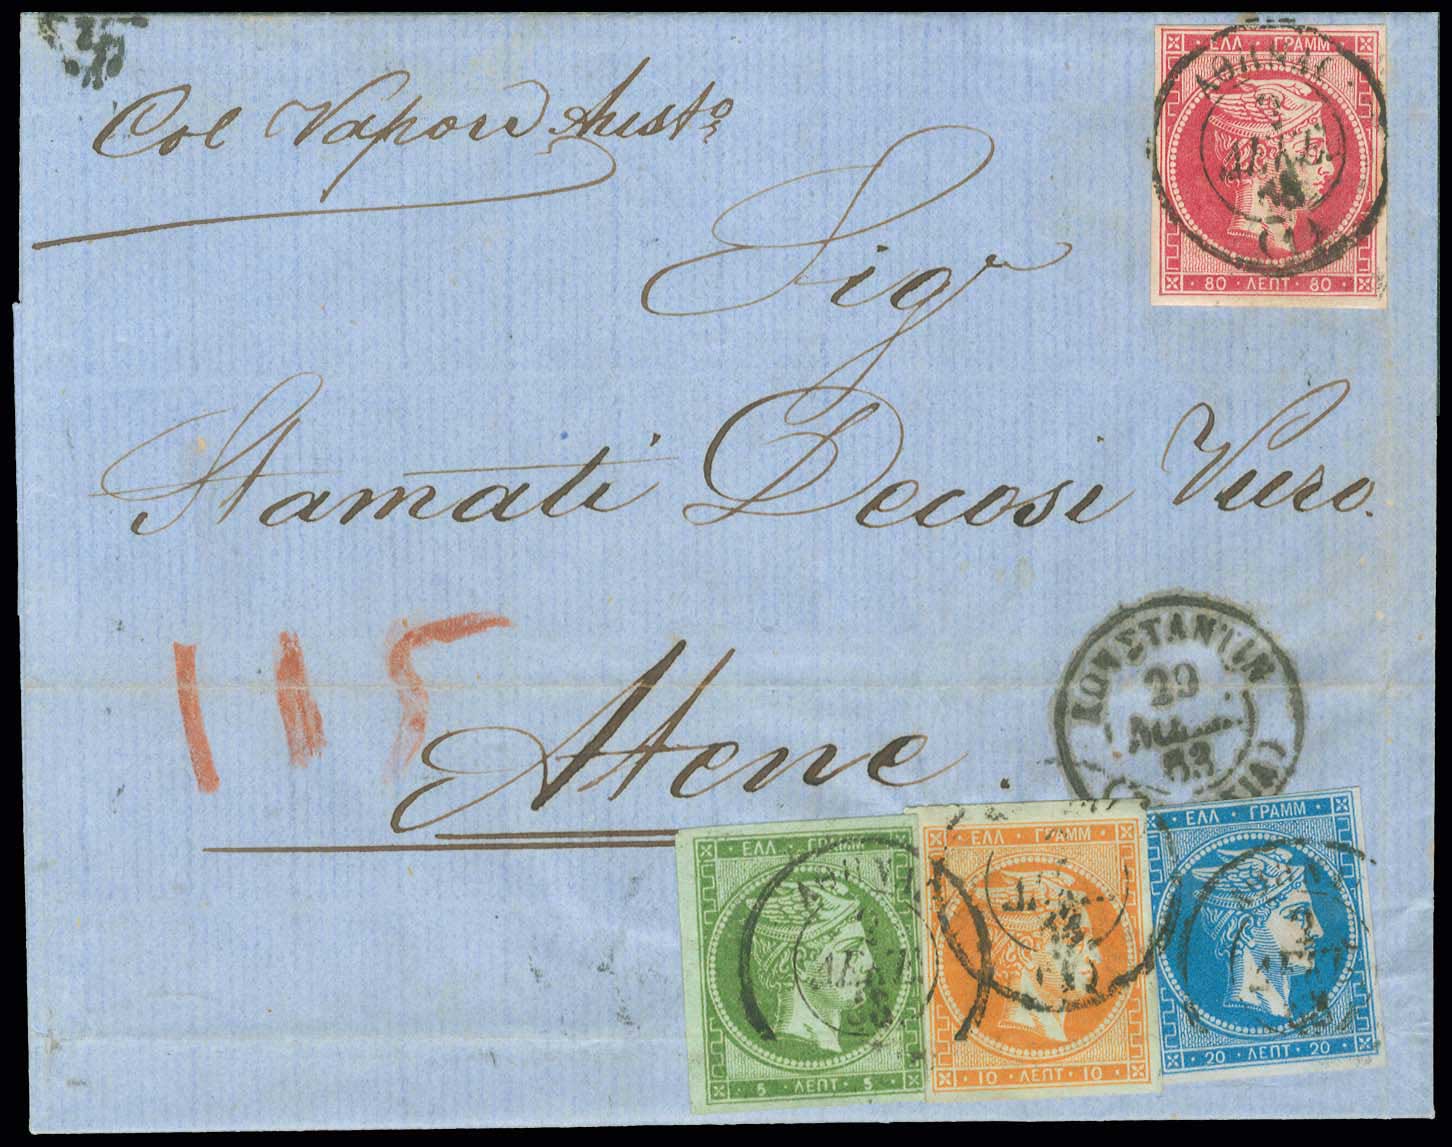 Col Vapore Aust°
Sigr
Stamati Decosi Vuro.
Atene.
115
ΕΛΛ ΓΡΑΜΜ
80 ΛΕΠΤ 80
ΑΘΗΝΑΙ
2
ΔΕΚ
(1)
ΚΩΝΣΤΑΝΤΙΝ
29
ΝΟΕΜ
63
ΕΛΛ ΓΡΑΜΜ
5 ΛΕΠΤ 5
ΕΛΛ ΓΡΑΜΜ
10 ΛΕΠΤ 10
ΕΛΛ ΓΡΑΜΜ
20 ΛΕΠΤ 20